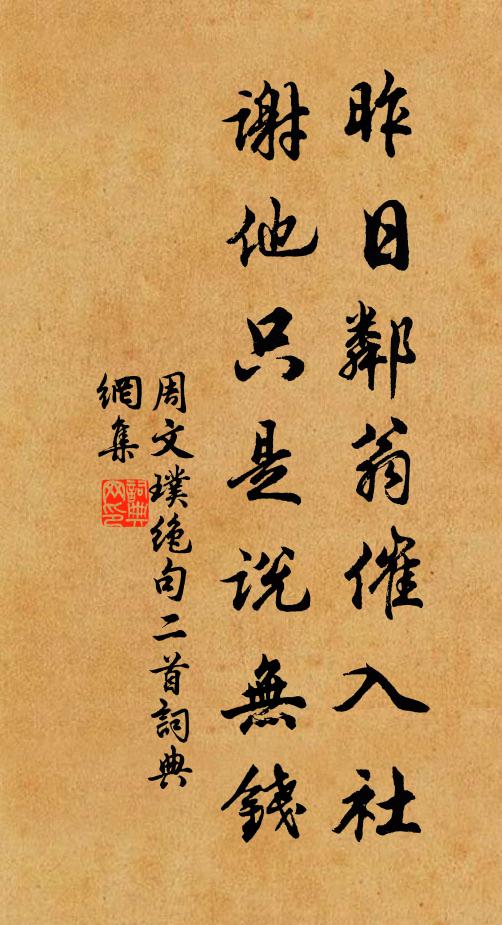 昨日鄰翁催入社
謝他只是説無錢
周文璞絶句二首詞典
網集
詞典
网印